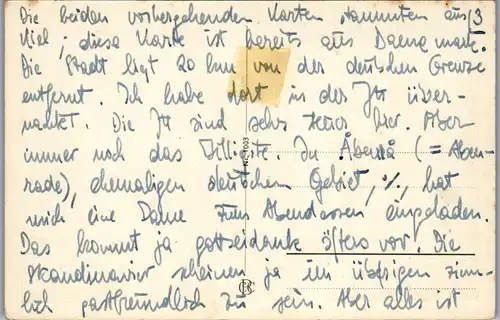 Die beiden vorhergehenden Karten stammten aus (3
Kiel; diese Karte ist bereits aus Daenemark.
Die Stadt ligt 20 km von der deutschen Grenze
entfernt. Ich habe dort in der JH über-
nachtet. Die JH sind sehr teuer hier. Aber
immer noch das Billigste. In Åbenrå (= Aben-
rade), ehemaligen deutschen Gebiet, %, hat
mich eine Dame zum Abendessen eingeladen.
Das kommt ja gottseidank öfters vor. Die
Skandinavier scheinen ja im übrigen ziem-
lich gastfreundlich zu sein. Aber alles ist